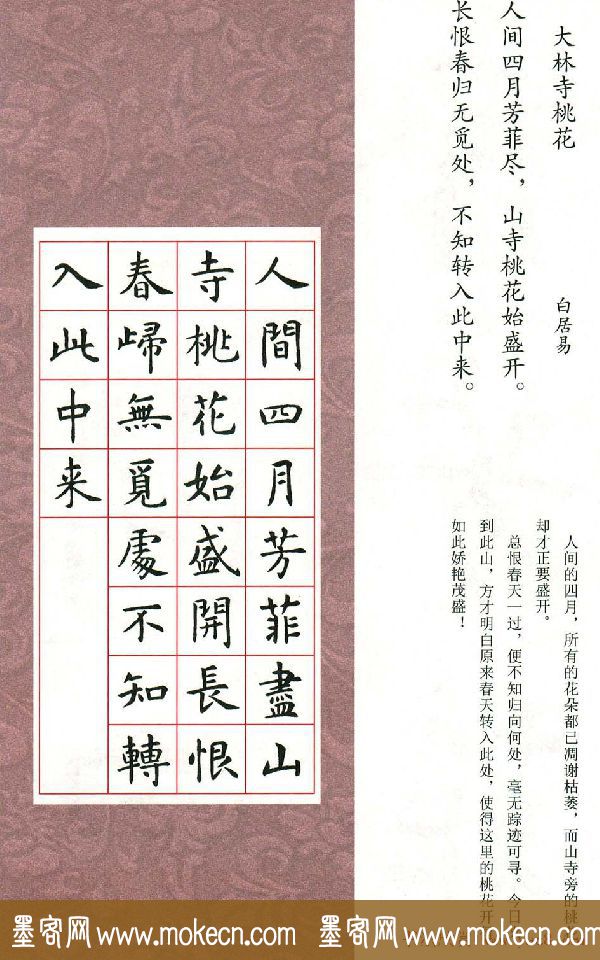 大林寺桃花
白居易
人间四月芳菲尽，山寺桃花始盛开。
长恨春归无觅处，不知转入此中来。
人间的四月，所有的花朵都已凋谢枯萎，而山寺旁的桃
却才正要盛开。
总恨春天一过，便不知归向何处，毫无踪迹可寻。今日
到此山，方才明白原来春天转入此处，使得这里的桃花开
如此娇艳茂盛！
人間四月芳菲盡山
寺桃花始盛開長恨
春歸無覓處不知轉
入此中来
墨客网 www.mokecn.com 墨客网 www.mokecn.com